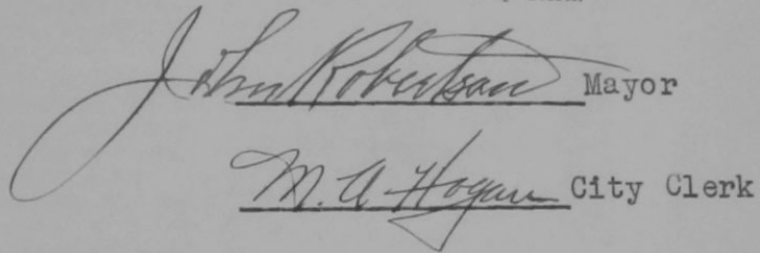 John Robertson Mayor
M. A. Hogan City Clerk